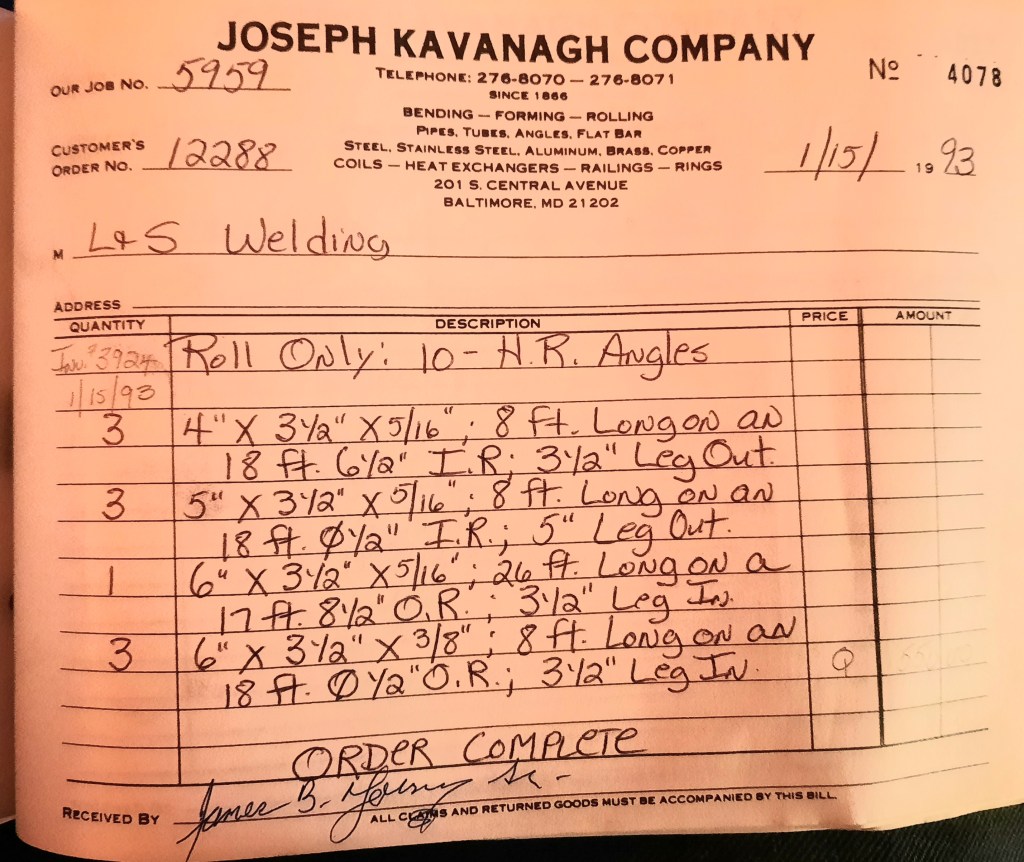 JOSEPH KAVANAGH COMPANY
OUR JOB NO. 5959
TELEPHONE: 276-8070 — 276-8071
Nº 4078
SINCE 1866
BENDING — FORMING — ROLLING
PIPES, TUBES, ANGLES, FLAT BAR
CUSTOMER'S ORDER NO. 12288
STEEL, STAINLESS STEEL, ALUMINUM, BRASS, COPPER
COILS — HEAT EXCHANGERS — RAILINGS — RINGS
1/15/ 1993
201 S. CENTRAL AVENUE
BALTIMORE, MD 21202
M L & S Welding
ADDRESS
QUANTITY DESCRIPTION PRICE AMOUNT
Roll Only: 10 - H.R. Angles
1/15/93
3 4" X 3 1/2" X 5/16"; 8 ft. Long on an
18 ft. 6 1/2" I.R; 3 1/2" Leg Out.
3 5" X 3 1/2" X 5/16"; 8 ft. Long on an
18 ft. 0 1/2" I.R.; 5" Leg Out.
1 6" X 3 1/2" X 5/16"; 26 ft. Long on a
17 ft. 8 1/2" O.R.; 3 1/2" Leg In.
3 6" X 3 1/2" X 3/8"; 8 ft. Long on an
18 ft. 0 1/2" O.R.; 3 1/2" Leg In.
ORDER COMPLETE
RECEIVED BY James B.
ALL CLAIMS AND RETURNED GOODS MUST BE ACCOMPANIED BY THIS BILL.